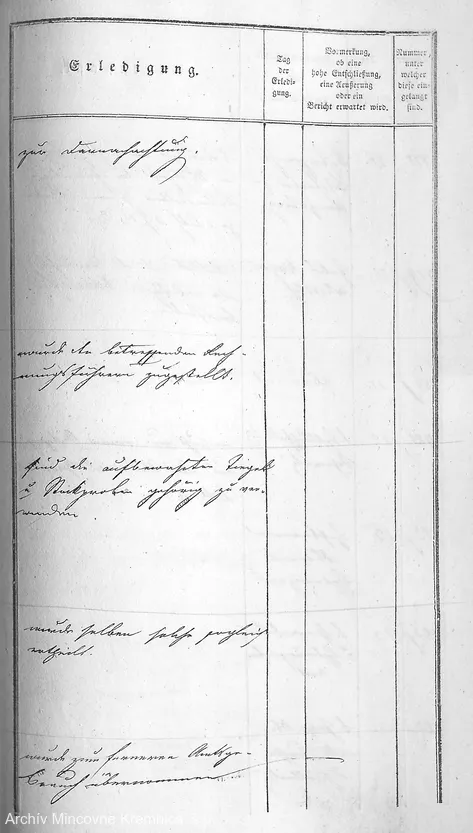 Erledigung.
Tag
der
Erledi-
gung.
Vormerkung,
ob eine
hohe Entschließung,
eine Äußerung
oder ein
Bericht erwartet wird.
Nummer,
unter
welcher
diese ein-
gelangt
sind.
zur Darnachachtung.
wurde den betreffenden Rech-
nungsführern zugestellt.
sind die aufbewahrten Tiegel
u Stockproben gehörig zu ver-
wenden.
wurde selben solche sogleich
ertheilt.
wurde zum ferneren Amtsge-
brauch übernommen
Archív Mincovne Kremnica